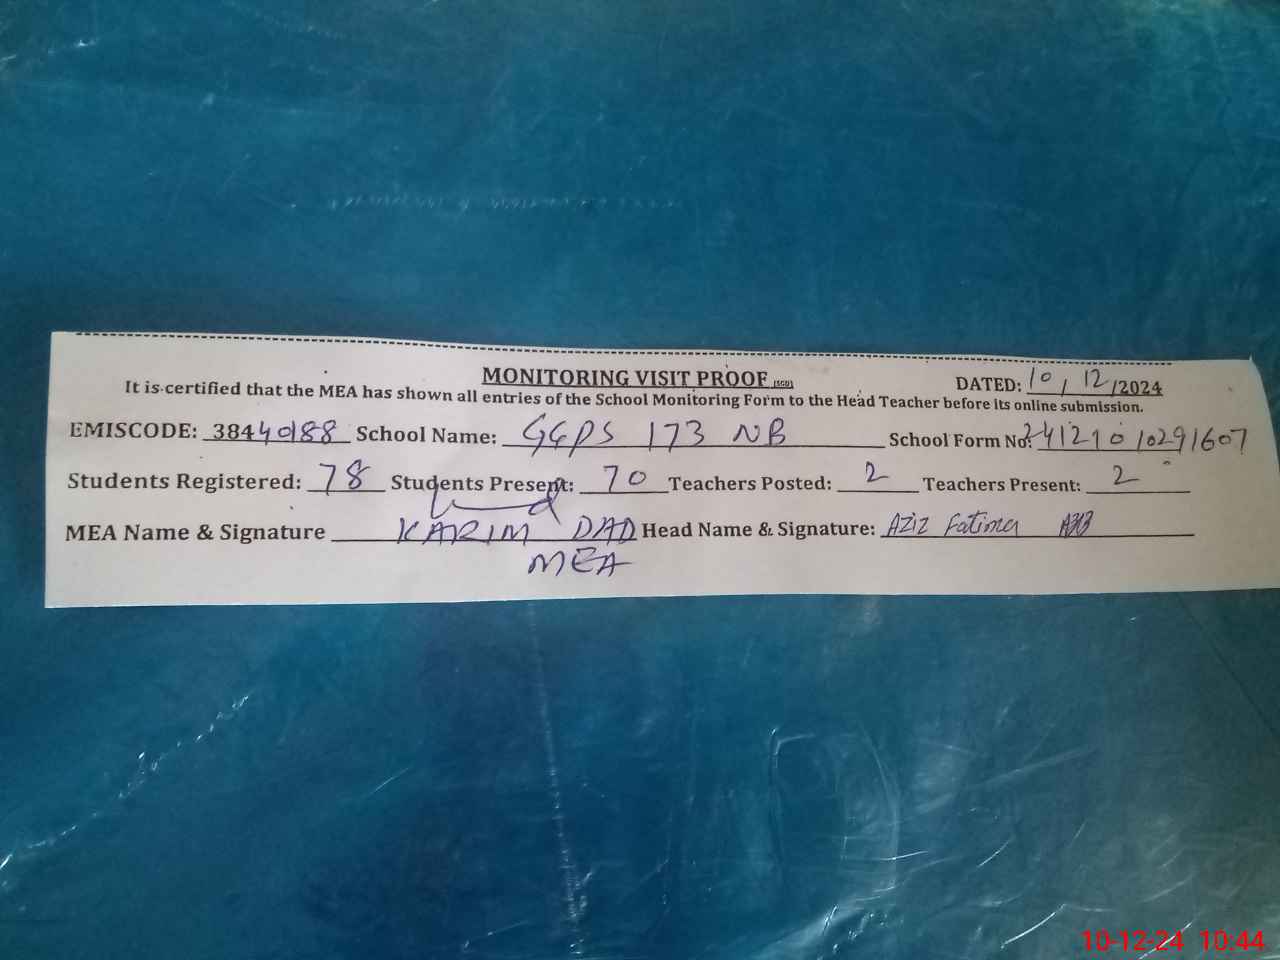 MONITORING VISIT PROOF (SGD) DATED: 10/12/2024
It is certified that the MEA has shown all entries of the School Monitoring Form to the Head Teacher before its online submission.
EMISCODE: 38440188 School Name: GGPS 173 NB School Form No: 24121010291607
Students Registered: 78 Students Present: 70 Teachers Posted: 2 Teachers Present: 2
MEA Name & Signature KARIM DAD Head Name & Signature: Aziz Fatima
MEA
10-12-24 10:44